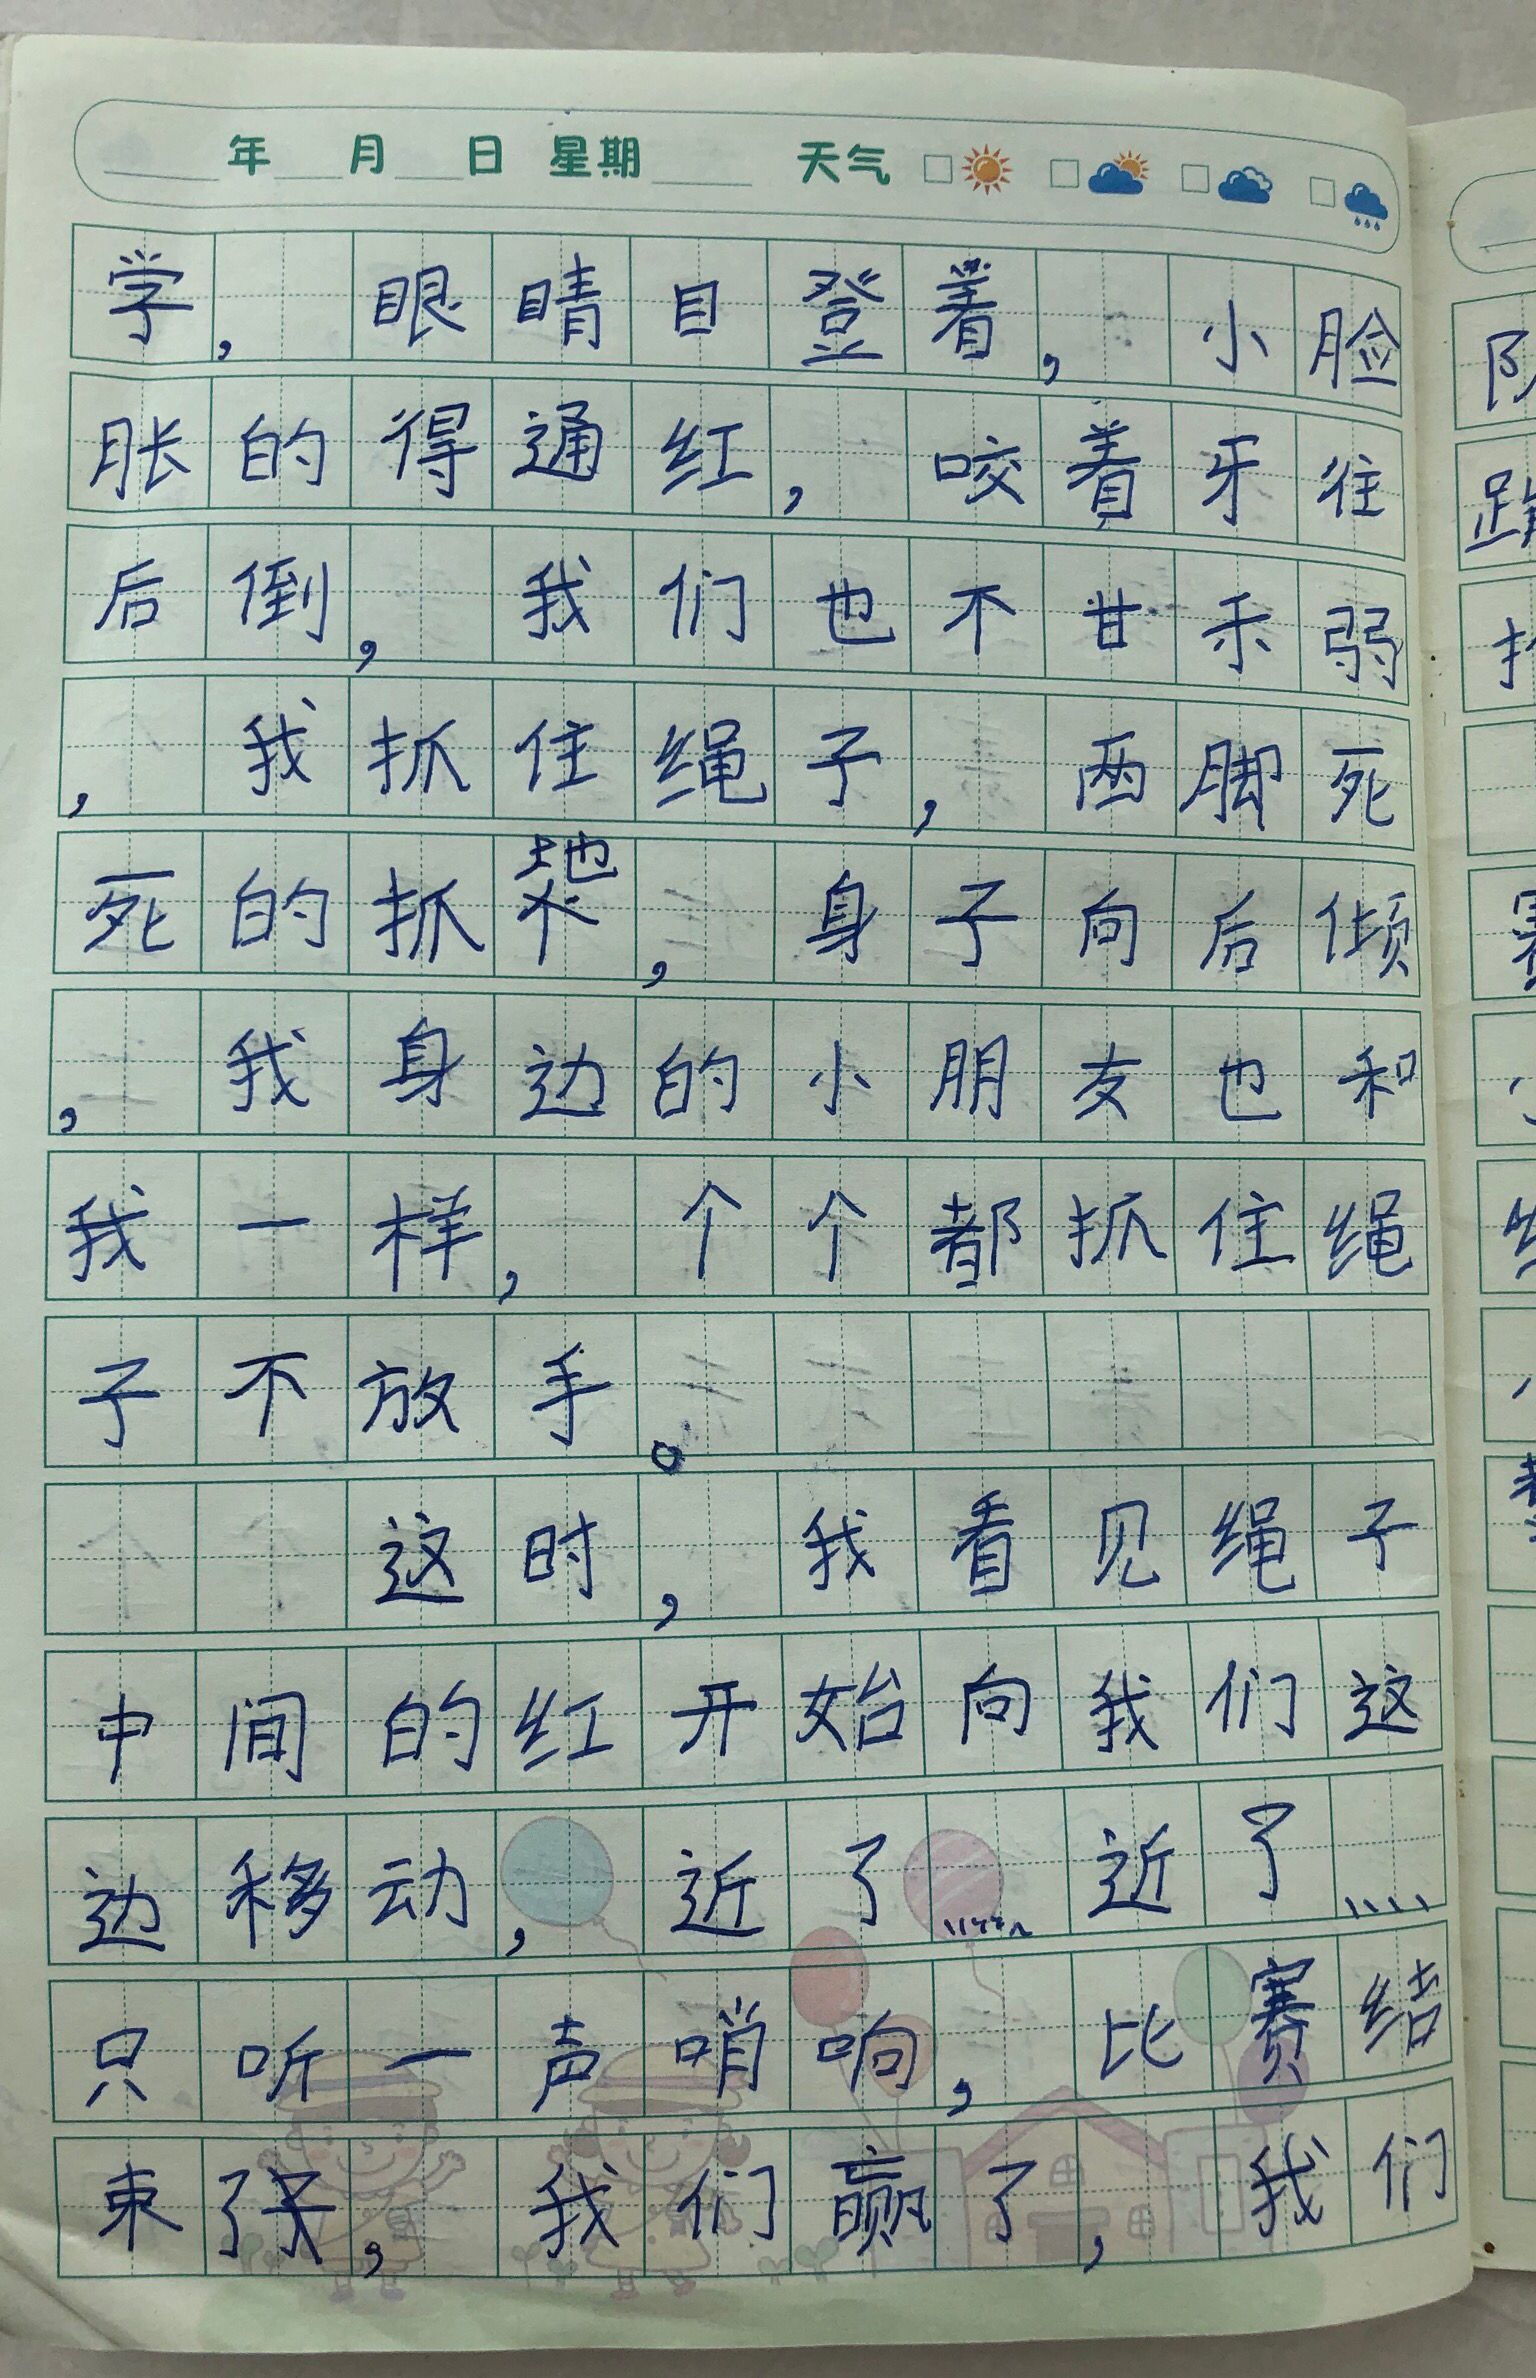 年 月 日 星期 天气
学，眼睛目登着，小脸
胀的得通红，咬着牙往
后倒，我们也不甘示弱
，我抓住绳子，两脚死
死的抓地，身子向后倾
，我身边的小朋友也和
我一样，个个都抓住绳
子不放手。
这时，我看见绳子
中间的红开始向我们这
边移动，近了……近了……
只听一声哨响，比赛结
束了，我们赢了，我们